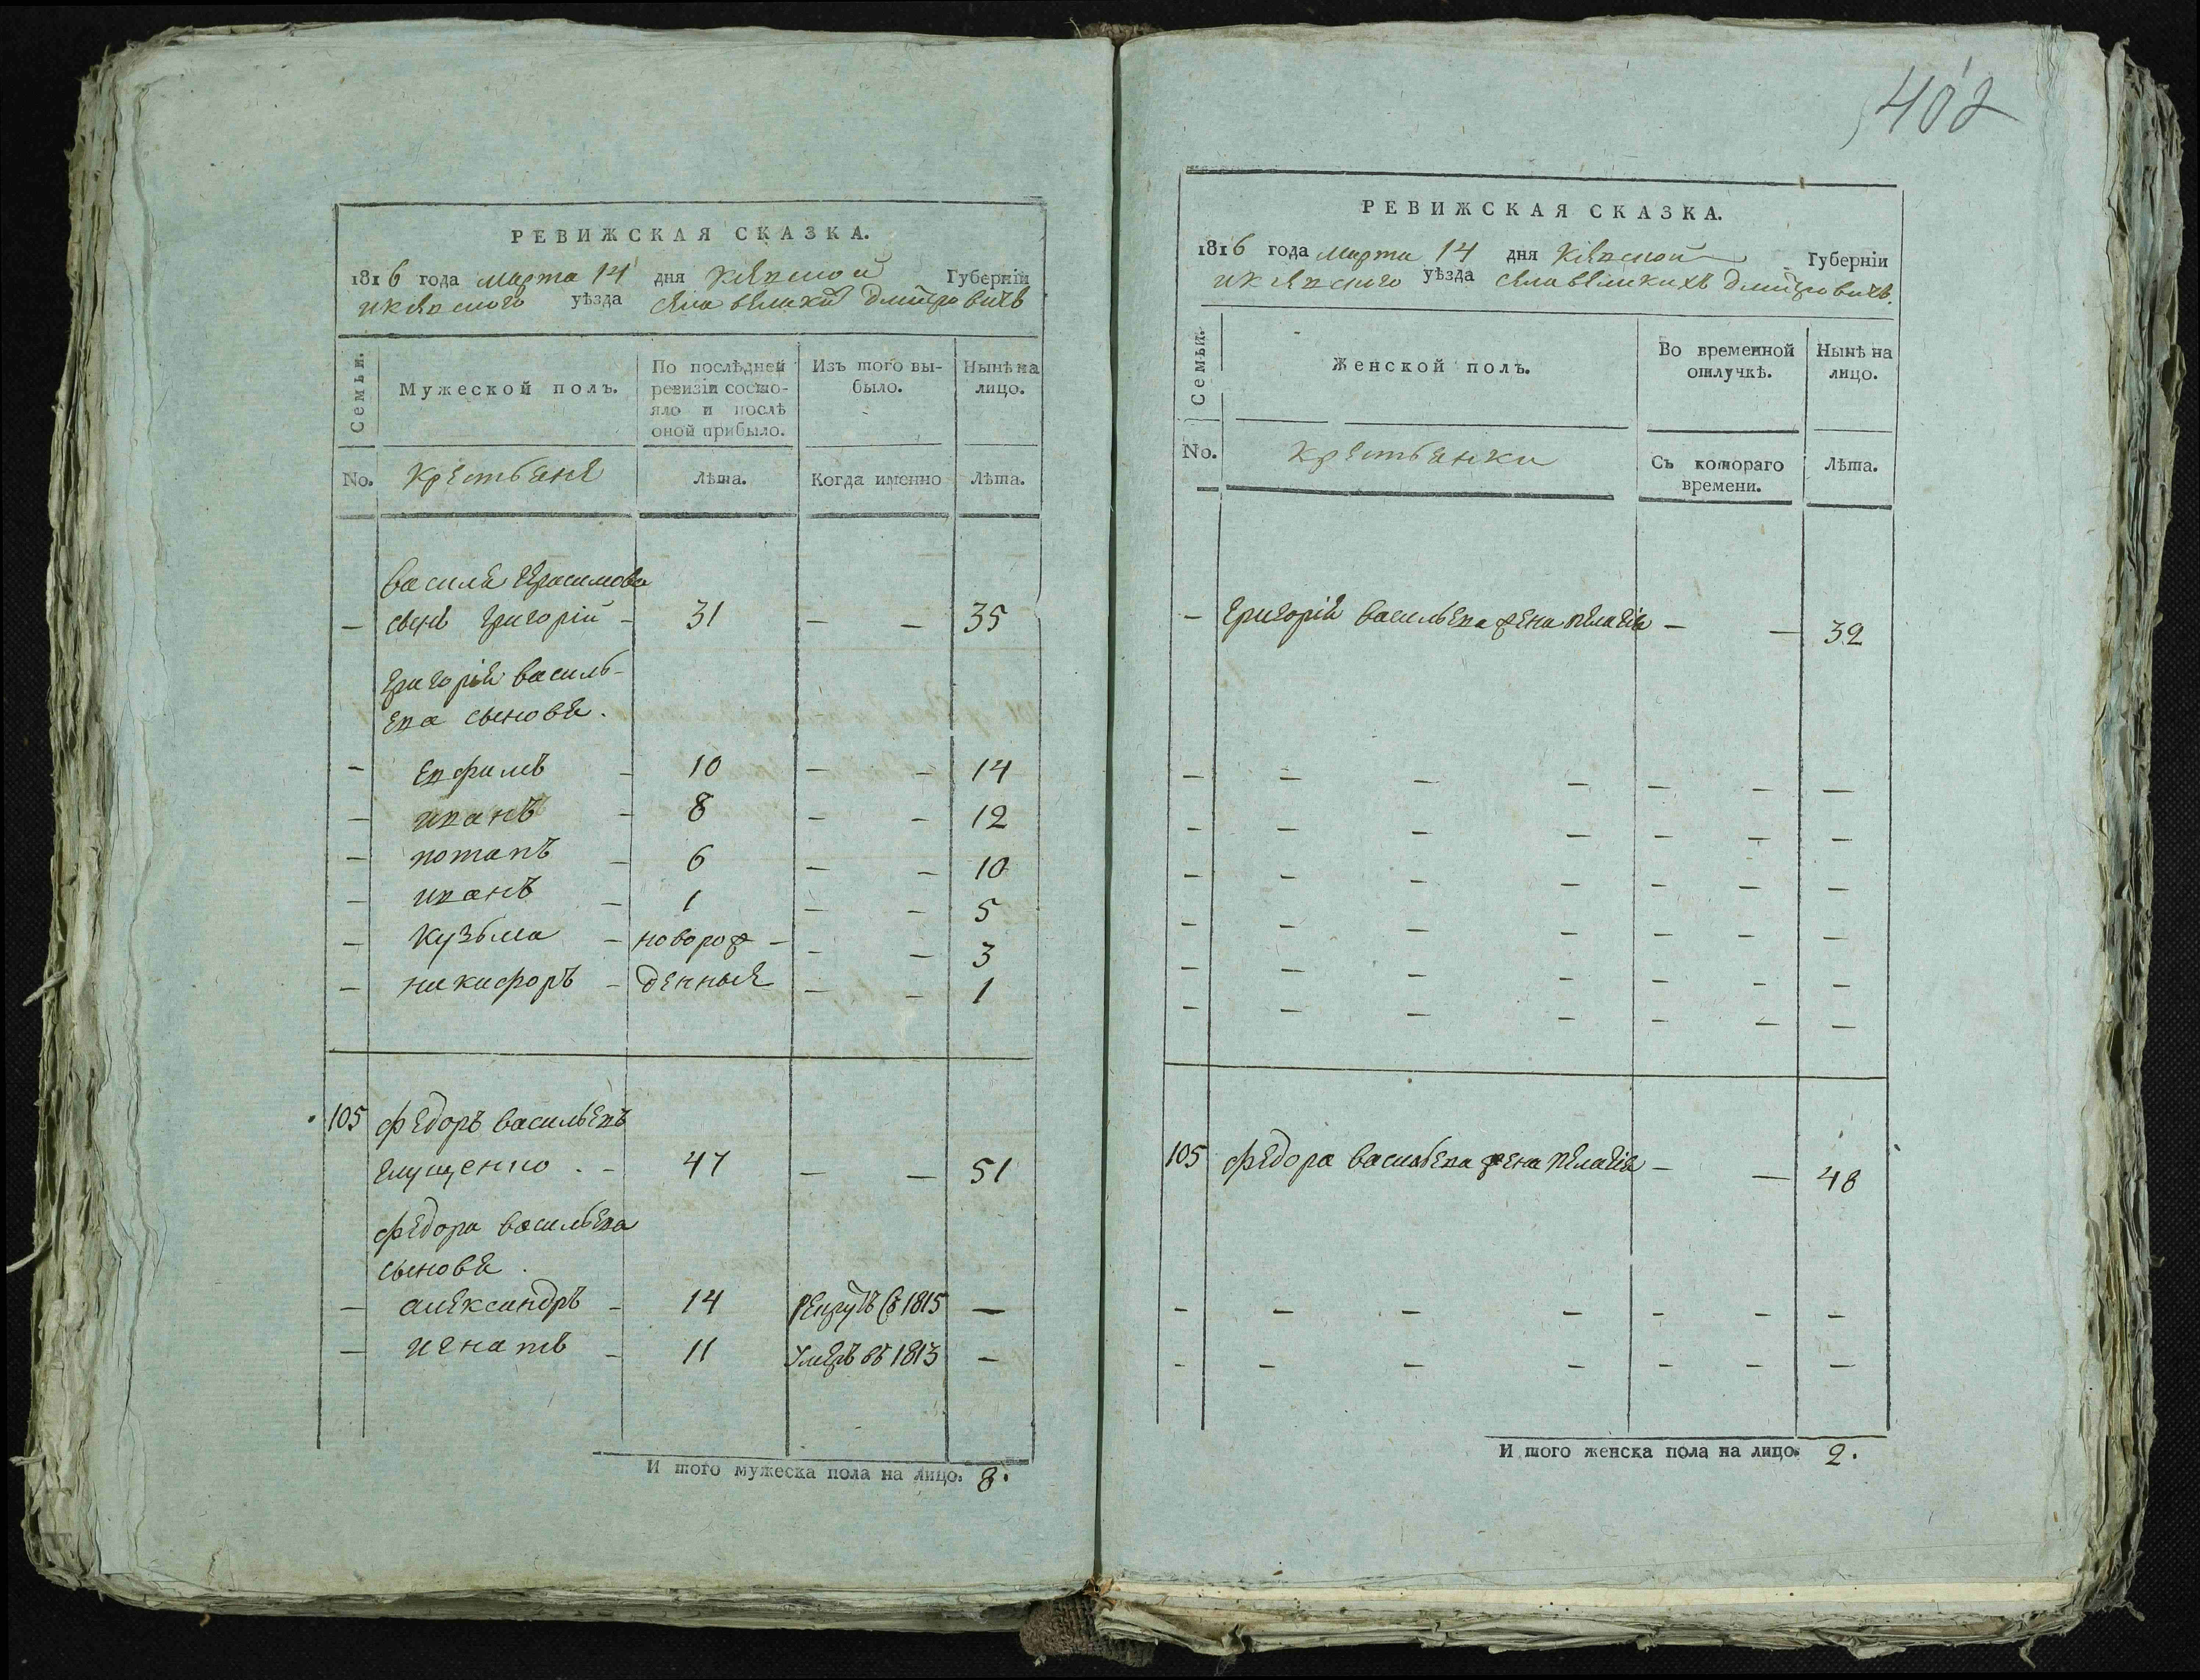 РЕВИЖСКАЯ СКАЗКА.
1816 года марта 14 дня Кіевской Губерніи
и Кіевского уѣзда села великихъ дмитровичъ
Семьи.
Мужеской полъ.
По послѣдней ревизіи состояло и послѣ оной прибыло.
Изъ того выбыло.
Нынѣ на лицо.
No. Крестьяне Лѣта. Когда именно Лѣта.
василія Герасимова
— сынъ григорій — 31 — — 35
григорія василь-
ева сыновья.
— евфимъ — 10 — — 14
— иванъ — 8 — — 12
— потапъ — 6 — — 10
— иванъ — 1 — — 5
— кузьма — новорож — — — 3
— никифоръ — денные — — 1
105 федоръ васильевъ
глущенко . — 47 — — 51
федора васильева
сыновья .
— александръ — 14 рекрутъ въ 1815 —
— игнатъ — 11 умеръ въ 1813 —
И того мужеска пола на лицо. 8.
402
РЕВИЖСКАЯ СКАЗКА.
1816 года марта 14 дня Кіевской Губерніи
и Кіевского уѣзда села великихъ дмитровичъ.
Семьи.
Женской полъ.
Во временной отлучкѣ.
Нынѣ на лицо.
No. Крестьянки Съ котораго времени. Лѣта.
— григорія васильева жена пелагія — — 32
— — — — — — —
— — — — — — —
— — — — — — —
— — — — — — —
— — — — — — —
— — — — — — —
105 федора васильева жена пелагія — — 48
— — — — — — —
— — — — — — —
И того женска пола на лицо. 2.